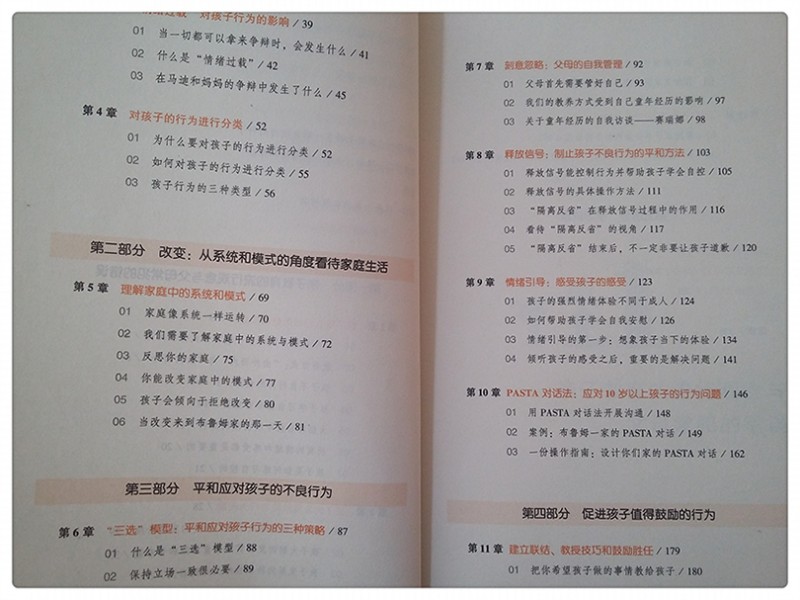 情绪过载 对孩子行为的影响 / 39
01 当一切都可以拿来争辩时，会发生什么 / 41
02 什么是“情绪过载” / 42
03 在马迪和妈妈的争辩中发生了什么 / 45
第 4 章 对孩子的行为进行分类 / 52
01 为什么要对孩子的行为进行分类 / 52
02 如何对孩子的行为进行分类 / 55
03 孩子行为的三种类型 / 56
第二部分 改变：从系统和模式的角度看待家庭生活
第 5 章 理解家庭中的系统和模式 / 69
01 家庭像系统一样运转 / 70
02 我们需要了解家庭中的系统与模式 / 72
03 反思你的家庭 / 75
04 你能改变家庭中的模式 / 77
05 孩子会倾向于拒绝改变 / 80
06 当改变来到布鲁姆家的那一天 / 81
第三部分 平和应对孩子的不良行为
第 6 章 “三选”模型：平和应对孩子行为的三种策略 / 87
01 什么是“三选”模型 / 88
02 保持立场一致很必要 / 89
第 7 章 刻意忽略：父母的自我管理 / 92
01 父母首先需要管好自己 / 93
02 我们的教养方式受到自己童年经历的影响 / 97
03 关于童年经历的自我访谈——赛瑞娜 / 98
第 8 章 释放信号：制止孩子不良行为的平和方法 / 103
01 释放信号能控制行为并帮助孩子学会自控 / 105
02 释放信号的具体操作方法 / 111
03 “隔离反省”在释放信号过程中的作用 / 116
04 看待“隔离反省”的视角 / 117
05 “隔离反省”结束后，不一定非要让孩子道歉 / 120
第 9 章 情绪引导：感受孩子的感受 / 123
01 孩子的强烈情绪体验不同于成人 / 124
02 如何帮助孩子学会自我安慰 / 126
03 情绪引导的第一步：想象孩子当下的体验 / 134
04 倾听孩子的感受之后，重要的是解决问题 / 141
第 10 章 PASTA 对话法：应对 10 岁以上孩子的行为问题 / 146
01 用 PASTA 对话法开展沟通 / 148
02 案例：布鲁姆一家的 PASTA 对话 / 149
03 一份操作指南：设计你们家的 PASTA 对话 / 162
第四部分 促进孩子值得鼓励的行为
第 11 章 建立联结、教授技巧和鼓励胜任 / 179
01 把你希望孩子做的事情教给孩子 / 180